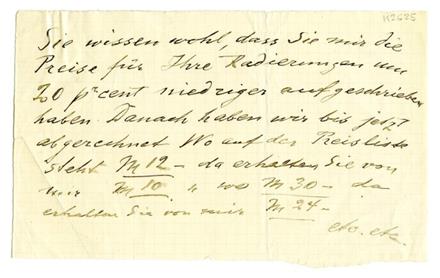 K2625
Sie wissen wohl, dass Sie mir die
Preise für Ihre Radierungen um
20 prcent niedriger aufgeschrieben
haben. Danach haben wir bis jetzt
abgerechnet Wo auf der Preisliste
steht M 12 – da erhalten Sie von
mir M 10. " wo M 30 – da
erhalten Sie von mir M 24 –
etc. etc.